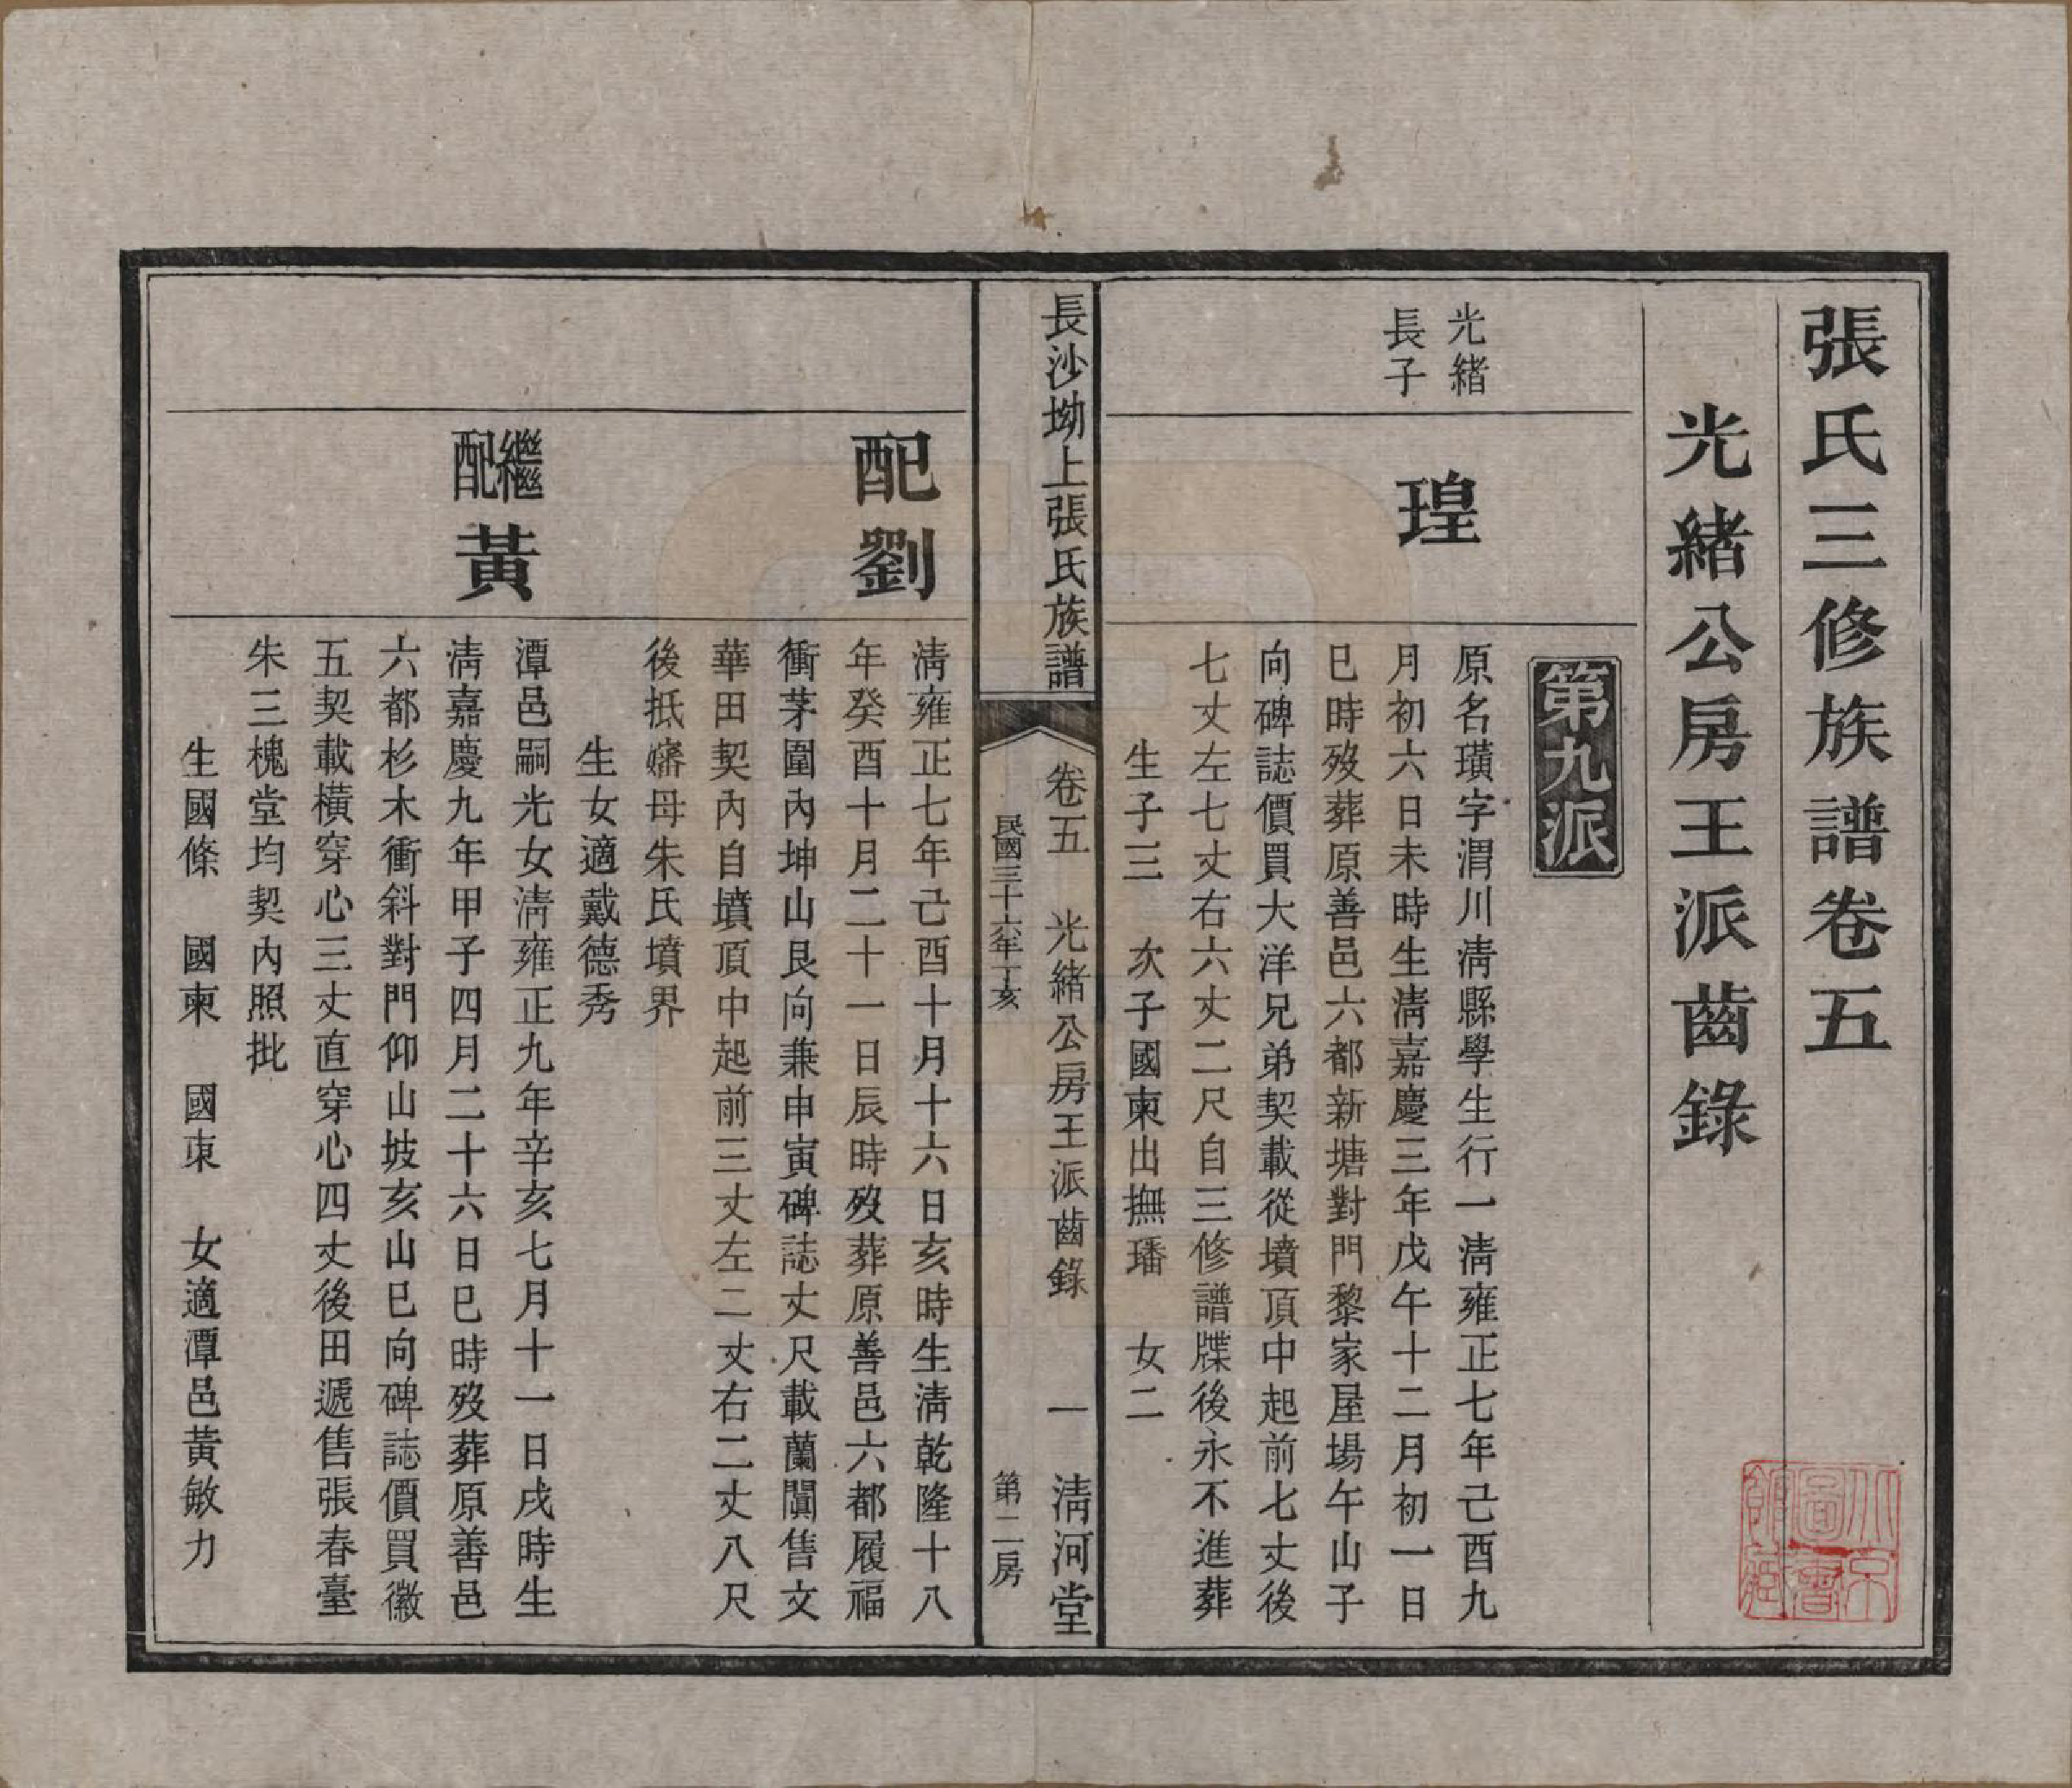 張氏三修族譜卷五
光緒公房王派齒錄
第九派
光緒
長子
瑝
原名璜字渭川清縣學生行一清雍正七年己酉九
月初六日未時生清嘉慶三年戊午十二月初一日
巳時歿葬原善邑六都新塘對門黎家屋場午山子
向碑誌價買大洋兄弟契載從墳頂中起前七丈後
七丈左七丈右六丈二尺自三修譜牒後永不進葬
生子三　次子國柬出撫璠　女二
長沙坳上張氏族譜
卷五　光緒公房王派齒錄　一　清河堂
民國三十六年丁亥　第二房
配劉
清雍正七年己酉十月十六日亥時生清乾隆十八
年癸酉十月二十一日辰時歿葬原善邑六都履福
衝茅圍內坤山艮向兼申寅碑誌丈尺載蘭闐售文
華田契內自墳頂中起前三丈左二丈右二丈八尺
後抵嬸母朱氏墳界
生女適戴德秀
繼配黃
潭邑嗣光女清雍正九年辛亥七月十一日戌時生
清嘉慶九年甲子四月二十六日巳時歿葬原善邑
六都杉木衝斜對門仰山坡亥山巳向碑誌價買徽
五契載橫穿心三丈直穿心四丈後田遞售張春臺
朱三槐堂均契內照批
生國條　國柬　國東　女適潭邑黃敏力